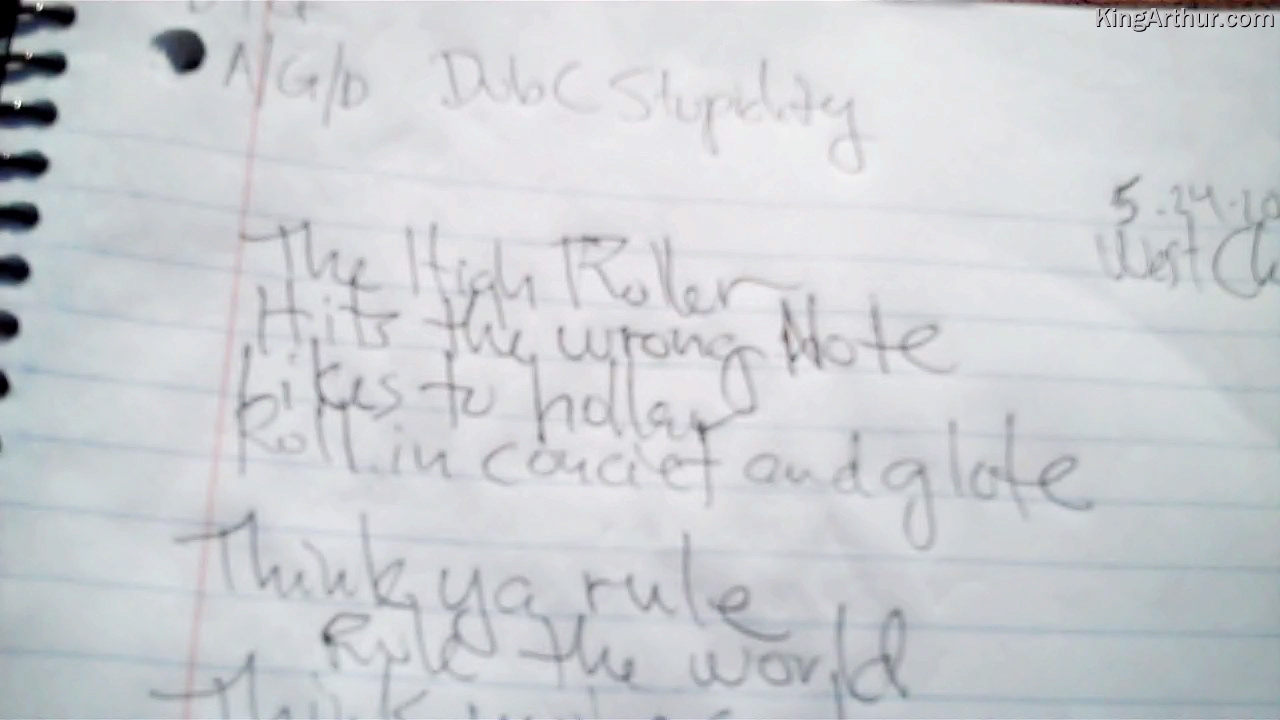 KingArthur.com
N/G/D DubC Stupidity
5-24-20
West
The High Roller
Hits the wrong Note
Likes to hollar
Roll in conciet and glote
Think ya rule
Rule the world
Think